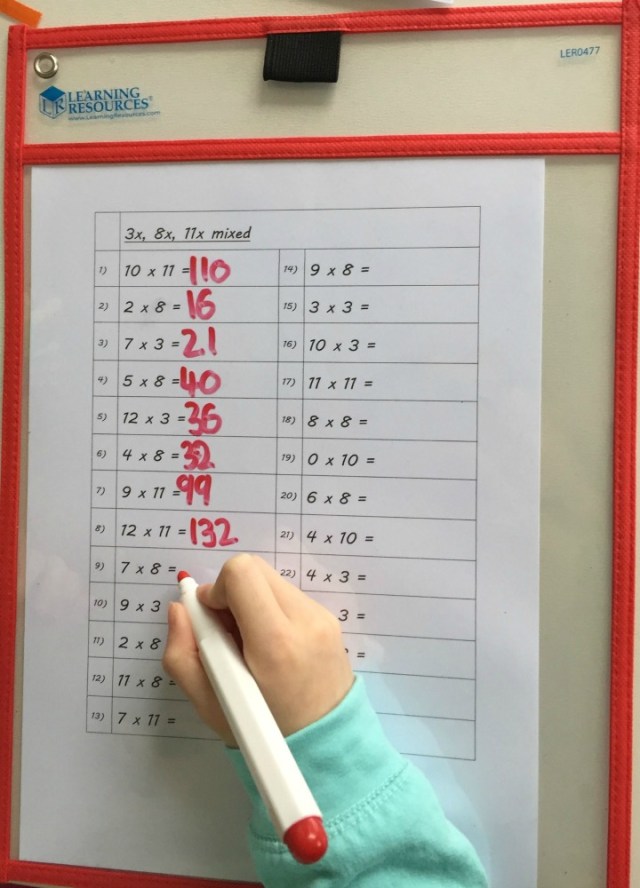 LER0477
LEARNING
RESOURCES®
www.LearningResources.com
3x, 8x, 11x mixed
1) 10 x 11 = 110
2) 2 x 8 = 16
3) 7 x 3 = 21
4) 5 x 8 = 40
5) 12 x 3 = 36
6) 4 x 8 = 32
7) 9 x 11 = 99
8) 12 x 11 = 132
9) 7 x 8 =
10) 9 x 3
11) 2 x 8
12) 11 x 8 =
13) 7 x 11 =
14) 9 x 8 =
15) 3 x 3 =
16) 10 x 3 =
17) 11 x 11 =
18) 8 x 8 =
19) 0 x 10 =
20) 6 x 8 =
21) 4 x 10 =
22) 4 x 3 =
3 =
=